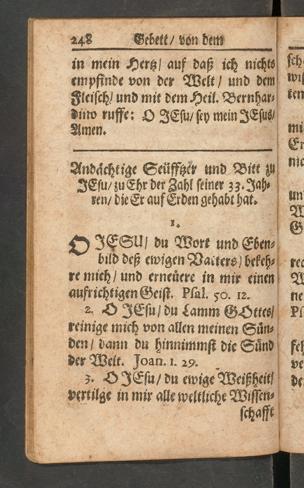 248 Gebett/ von dem
in mein Hertz/ auf daß ich nichts
empfinde von der Welt/ und dem
Fleisch/ und mit dem Heil. Bernhar-
dino ruffe: O JEsu/ sey mein JEsus/
Amen.
Andächtige Seüfftzer und Bitt zu
JEsu/ zu Ehr der Zahl seiner 33. Jah-
ren/ die Er auf Erden gehabt hat.
1.
O JESU/ du Wort und Eben-
bild deß ewigen Vatters/ bekeh-
re mich/ und erneüere in mir einen
aufrichtigen Geist. Psal. 50. 12.
2. O JEsu/ du Lamm GOttes/
reinige mich von allen meinen Sün-
den/ dann du hinnimmst die Sünd
der Welt. Joan. 1. 29.
3. O JEsu/ du ewige Weißheit/
vertilge in mir alle weltliche Wissen-
schafft